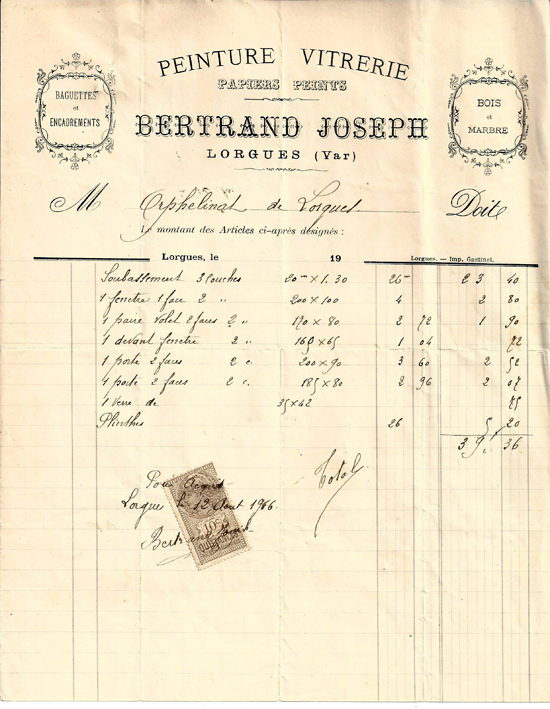 PEINTURE VITRERIE
PAPIERS PEINTS
BAGUETTES
et
ENCADREMENTS
BOIS
et
MARBRE
BERTRAND JOSEPH
LORGUES (Var)
M Orphelinat de Lorgues Doit
Le montant des Articles ci-après désignés :
Lorgues, le 19
Lorgues. — Imp. Gastinel.
Soubassement 3 couches 20 m × 1.30 26 m 23 40
1 fenetre 1 face 2 " 200 × 100 4 2 80
1 paire volet 2 faces 2 " 170 × 80 2 72 1 90
1 devant fenetre 2 " 165 × 65 1 04 72
1 porte 2 faces 2 c. 200 × 90 3 60 2 52
1 porte 2 faces 2 c. 185 × 80 2 96 2 07
1 verre de 35 × 42 75
Plinthes 26 5 20
39 36
Total
Pour Acquit
Lorgues le 12 Aout 1906
10c